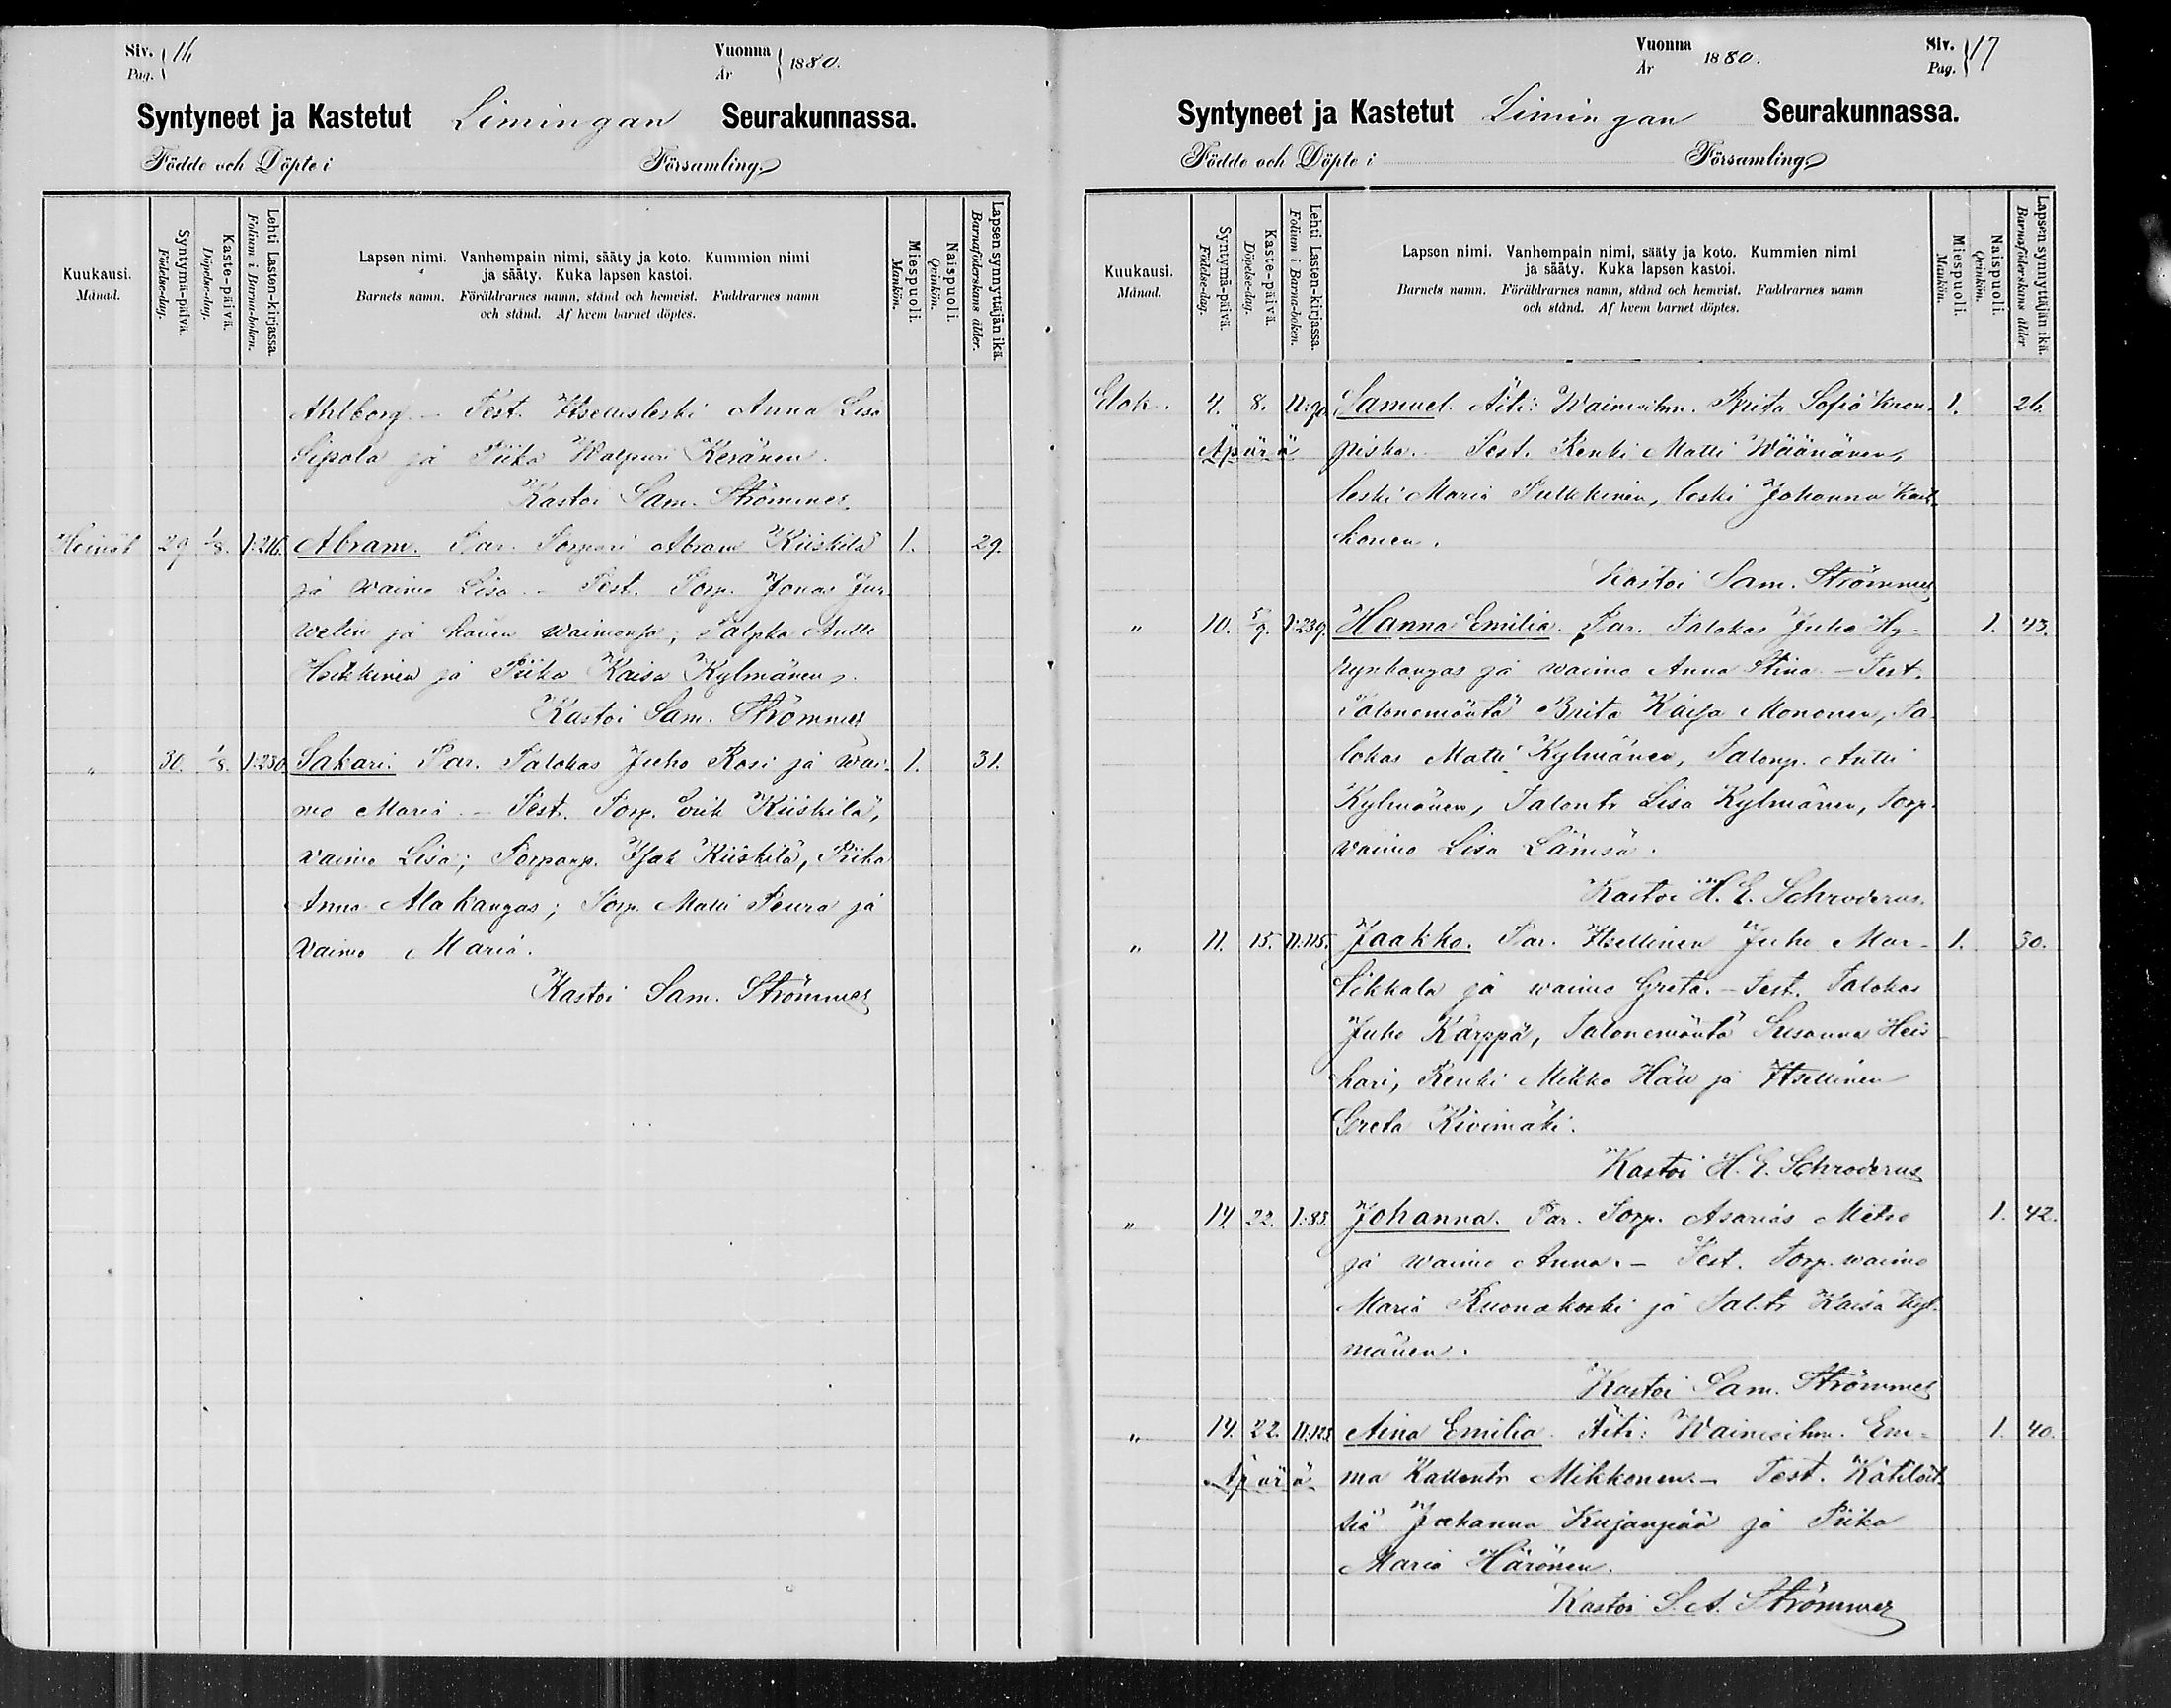 Siv. 16
Pag.
Vuonna 1880.
År
Syntyneet ja Kastetut Limingan Seurakunnassa.
Födde och Döpte i Församling
Kuukausi.
Månad.
Syntymä-päivä.
Födelse-dag.
Kaste-päivä.
Döpelse-dag.
Lehti Lasten-kirjassa.
Folium i Barna-boken.
Lapsen nimi. Vanhempain nimi, sääty ja koto. Kummien nimi
ja sääty. Kuka lapsen kastoi.
Barnets namn. Föräldrarnes namn, stånd och hemvist. Faddrarnes namn
och stånd. Af hvem barnet döptes.
Miespuoli.
Mankön.
Naispuoli.
Qvinkön.
Lapsen synnyttäjän ikä.
Barnaföderskans ålder.
Ahlborg. – Test. Itsellisleski Anna Lisa
Sipola ja Piika Walpuri Keränen.
Kastoi Sam. Strömmer
Heinäk 29 1/8. I:216. Abram. Par. Torpari Abram Kiiskilä 1. 29.
ja waimo Lisa. – Test. Torp. Jonas Jur-
welin ja hänen waimonsa, Talpka Antti
Heikkinen ja Piika Kaisa Kylmänen.
Kastoi Sam. Strömmer
" 30. 1/8. I:230. Sakari. Par. Talokas Juho Rosi ja wai- 1. 31.
mo Maria. – Test. Torp. Erik Kiiskilä,
vaimo Lisa; Torparp. Isak Kiiskilä, Piika
Anna Alakangas; Torp. Matti Peura ja
Vaimo Maria.
Kastoi Sam. Strömmer
Vuonna 1880.
År
Siv. 17
Pag.
Syntyneet ja Kastetut Limingan Seurakunnassa.
Födde och Döpte i Församling
Kuukausi.
Månad.
Syntymä-päivä.
Födelse-dag.
Kaste-päivä.
Döpelse-dag.
Lehti Lasten-kirjassa.
Folium i Barna-boken.
Lapsen nimi. Vanhempain nimi, sääty ja koto. Kummien nimi
ja sääty. Kuka lapsen kastoi.
Barnets namn. Föräldrarnes namn, stånd och hemvist. Faddrarnes namn
och stånd. Af hvem barnet döptes.
Miespuoli.
Mankön.
Naispuoli.
Qvinkön.
Lapsen synnyttäjän ikä.
Barnaföderskans ålder
Elok. 4. 8. II:90. Samuel. Äiti: Waimoihm. Brita Sofia Kron- 1. 26.
Äpärä piska. – Test. Renki Matti Wäänänen,
leski Maria Pulkkinen, leski Johanna
honen.
Kastoi Sam. Strömmer
" 10. 5/9. I:239. Hanna Emilia. Par. Talokas Juho Hy- 1. 43.
rynkangas ja waimo Anna Stina – Test.
Talonemäntä Brita Kaisa Mononen, Ta-
lokas Matti Kylmänen, Talonp. Antti
Kylmänen, Talontr Lisa Kylmänen, Torp.
waimo Lisa Lämsä.
Kastoi H. E. Schroderus.
" 11. 15. II:115. Jaakko. Par. Itsellinen Juho Mar- 1. 30.
tikkala ja waimo Greta. – Test. Talokas
Juho Kärppä, Talonemäntä Susanna Heis-
kari, Renki Mikko Häli ja Itsellinen
Greta Kivimäki.
Kastoi H. E. Schroderus
" 14. 22. I:83. Johanna. Par. Torp. Asarias Metso 1. 42.
ja waimo Anna. – Test. Torp. waimo
Maria Ruonakoski ja Tal.tr Kaisa Kyl-
mänen.
Kastoi Sam. Strömmer
" 14. 22. II:123. Aina Emilia. Äiti: Waimoihm. Em- 1. 40.
Äpärä ma Kallentr Mikkonen. – Test. Kätilöit-
siä Johanna Kujanpää ja Piika
Maria Härönen.
Kastoi S. A. Strömmer